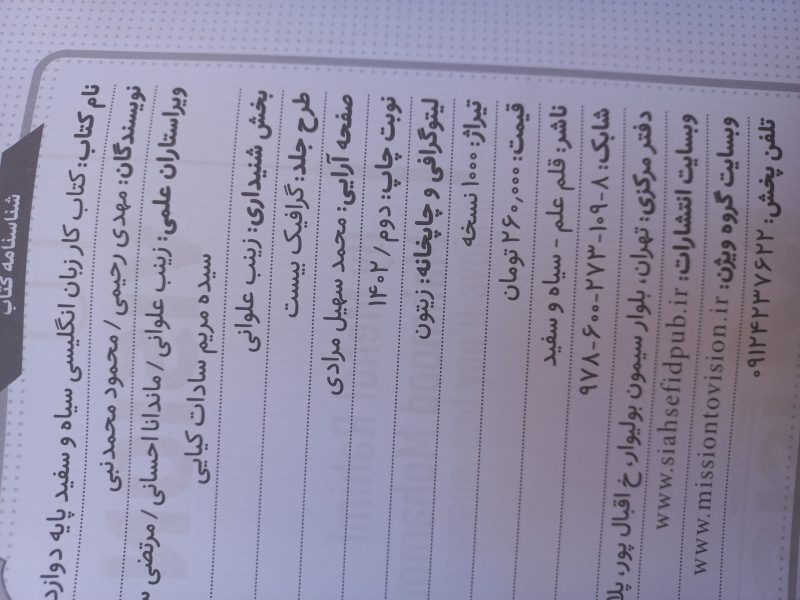 شناسنامه کتاب
نام کتاب: کتاب کار زبان انگلیسی سیاه و سفید پایه
نویسندگان: مهدی رحیمی / محمود محمدنبی
ویراستاران علمی: زینب علوانی / ماندانا احسانی / مرتضی
سیده مریم سادات کیایی
بخش شنیداری: زینب علوانی
طرح جلد: گرافیک بیست
صفحه آرایی: محمد سهیل مرادی
نوبت چاپ: دوم / ۱۴۰۲
لیتوگرافی و چاپخانه: زیتون
تیراژ: ۱۰۰۰ نسخه
قیمت: ۲۶۰,۰۰۰ تومان
ناشر: قلم علم - سیاه و سفید
شابک: ۸-۱۰۹-۲۷۳-۶۰۰-۹۷۸
دفتر مرکزی: تهران، بلوار سیمون بولیوار، خ اقبال پور،
وبسایت انتشارات: www.siahsefidpub.ir
وبسایت گروه ویژن: www.missiontovision.ir
تلفن پخش: ۰۹۱۲۴۲۳۷۶۲۲